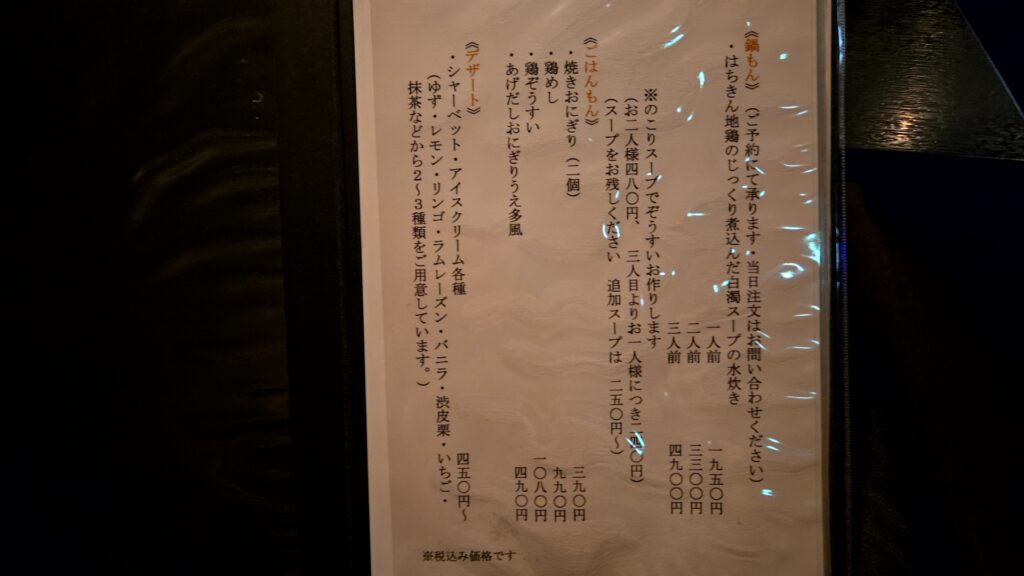 《鍋もん》（ご予約にて承ります・当日注文はお問い合わせください）
・はちきん地鶏のじっくり煮込んだ白濁スープの水炊き
一人前　一九五〇円
二人前　三三〇〇円
三人前　四九〇〇円
※のこりスープでぞうすいお作りします
（お二人様四八〇円、三人目よりお一人様につき二四〇円）
（スープをお残しください　追加スープは　二五〇円～）
《ごはんもん》
・焼きおにぎり（二個）　三九〇円
・鶏めし　九九〇円
・鶏ぞうすい　一〇八〇円
・あげだしおにぎりうえ多風　四九〇円
《デザート》
・シャーベット・アイスクリーム各種　四五〇円～
（ゆず・レモン・リンゴ・ラムレーズン・バニラ・渋皮栗・いちご・
抹茶などから2～3種類をご用意しています。）
※税込み価格です